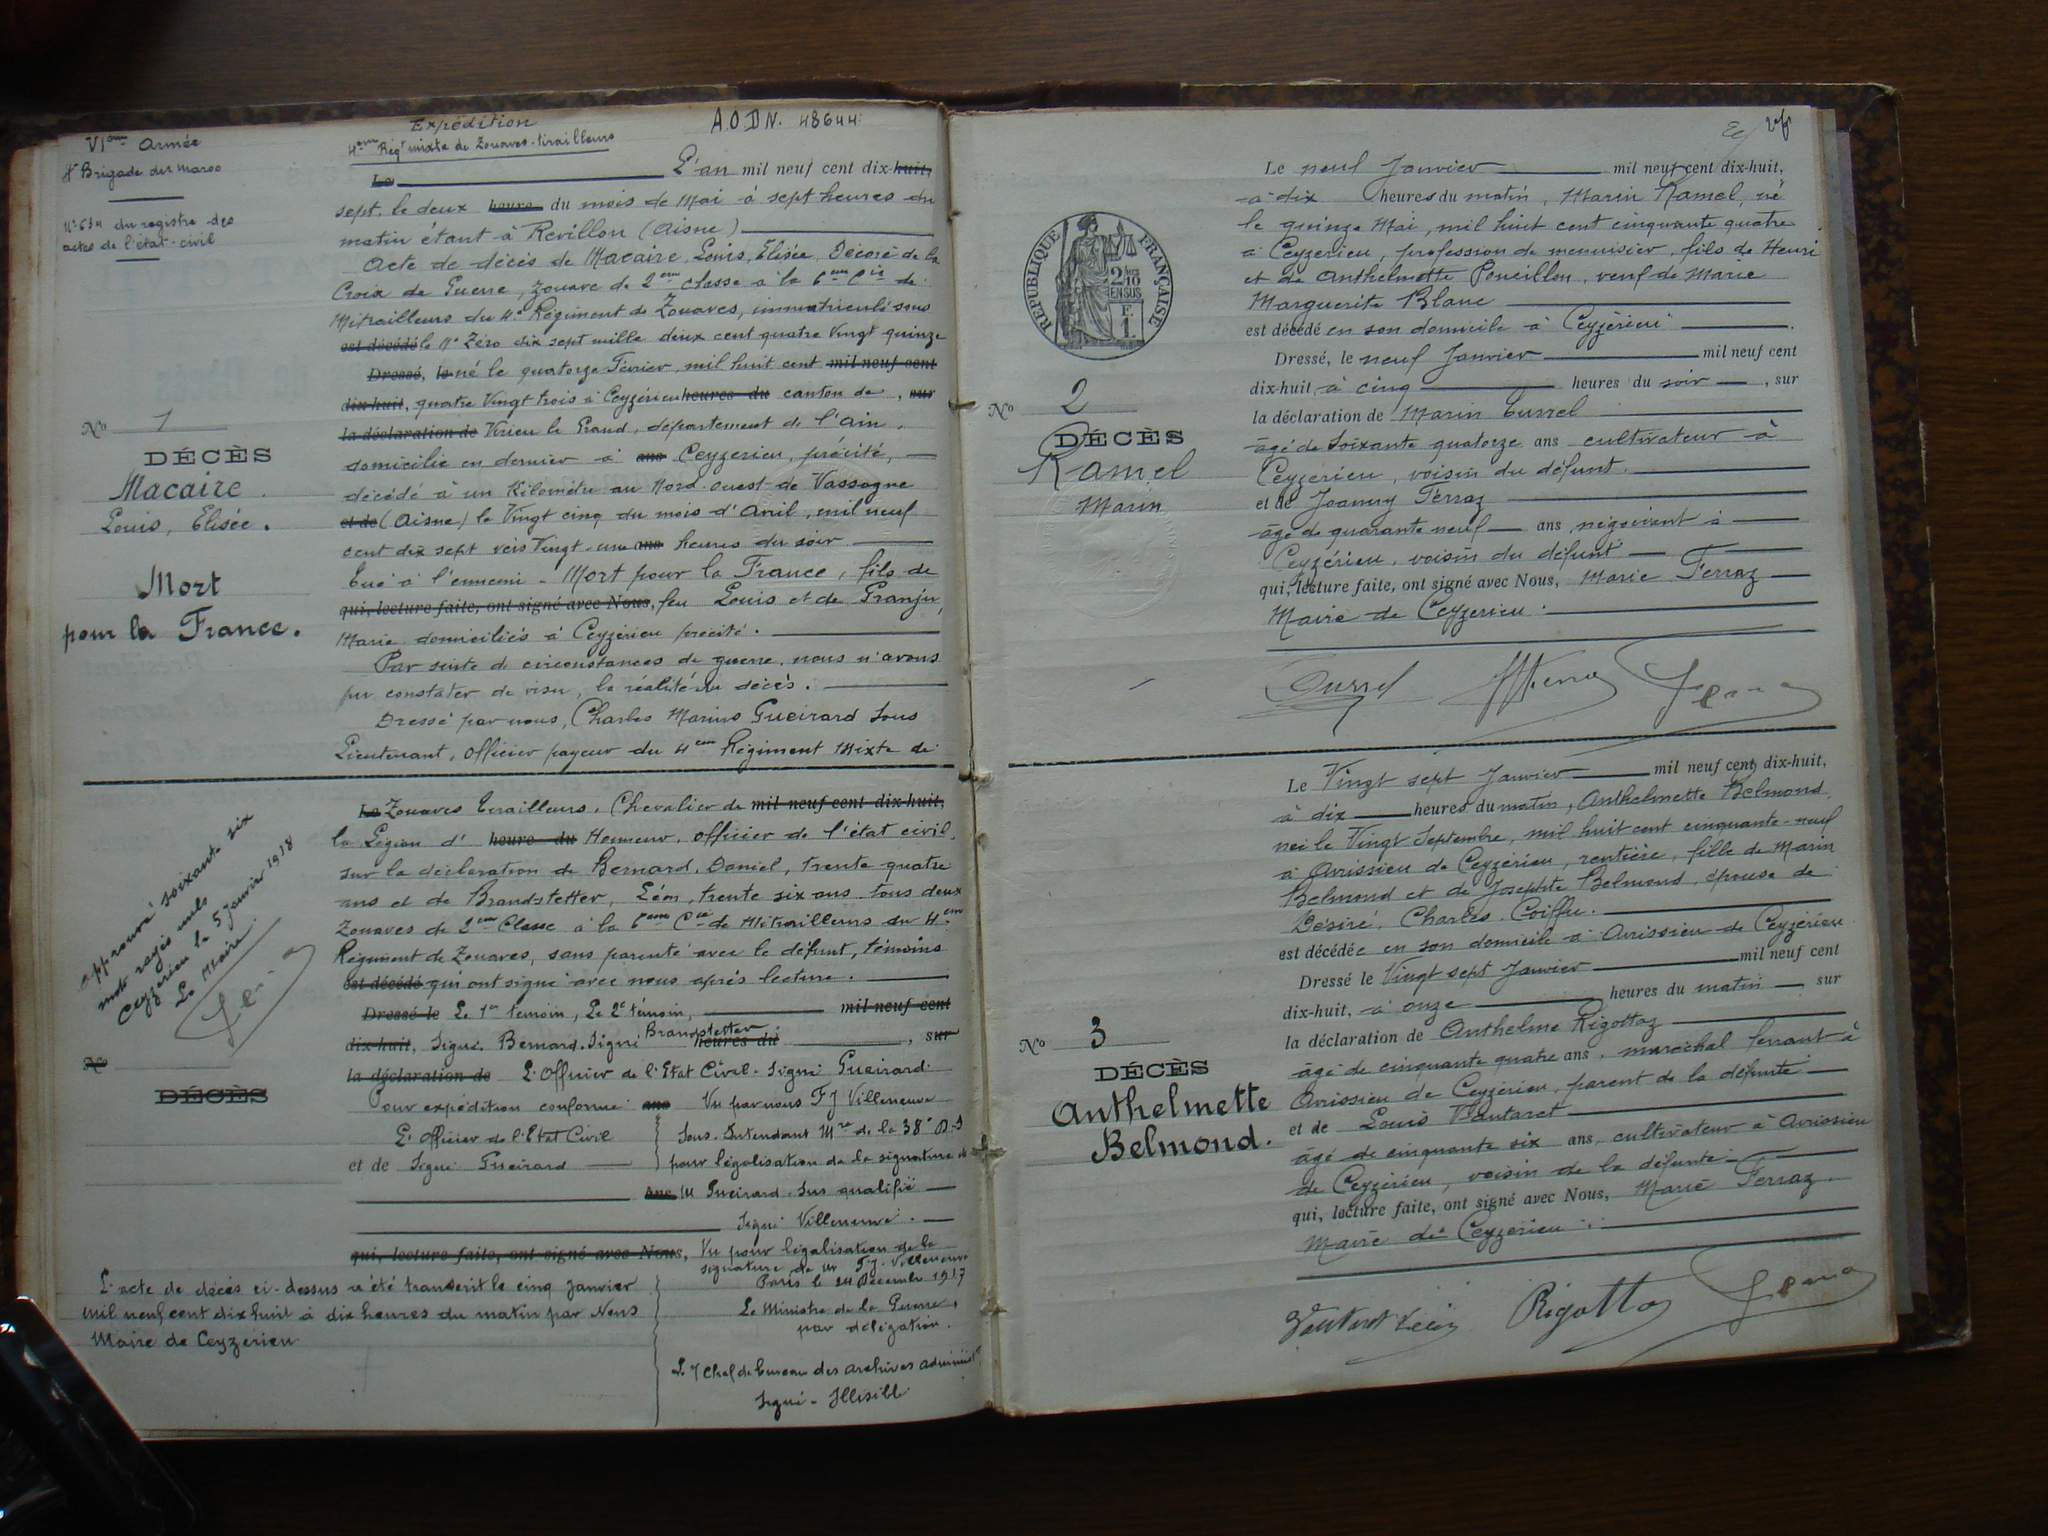 VIème Armée
4e Brigade du Maroc
N° 634 du registre des
actes de l'état-civil
Expédition
4ème Régt mixte de Zouaves-tirailleurs
A.O.D.N. 48644
Le L'an mil neuf cent dix-huit,
sept, le deux heure du mois de Mai à sept heures du
matin étant à Revillon (Aisne)
Acte de décès de Macaire Louis, Elisée, Décoré de la
Croix de Guerre, Zouave de 2ème classe à la 6ème Cie de
Mitrailleurs du 4e Régiment de Zouaves, immatriculé sous
est décédé le N° Zéro dix sept mille deux cent quatre vingt quinze
Dressé, le né le quatorze Février, mil huit cent mil neuf cent
dix-huit, quatre Vingt trois à Ceyzérieu heures du canton de , sur
la déclaration de Virieu le Grand, département de l'Ain,
domicilié en dernier à ans Ceyzerieu, précité,
décédé à un Kilomètre au Nord-Ouest de Vassogne
et de (Aisne) le Vingt cinq du mois d'Avril, mil neuf
cent dix sept vers Vingt-une ans heures du soir
tué à l'ennemi - Mort pour la France, fils de
qui, lecture faite, ont signé avec Nous, feu Louis et de Granju,
Marie domiciliés à Ceyzérieu précité.
Par suite de circonstances de guerre, nous n'avons
pu constater de visu, la réalité du décès.
Dressé par nous, Charles Marius Gueirard Sous
Lieutenant, officier payeur du 4ème Régiment Mixte de
N° 1
DÉCÈS
Macaire
Louis, Elisée.
Mort
pour la France.
Le Zouaves Tirailleurs, Chevalier de mil neuf cent dix-huit,
la Légion d' heure du Honneur, officier de l'état civil,
sur la déclaration de Bernard, Daniel, trente quatre
ans et de Brandstetter, Léon, trente six ans tous deux
Zouaves de 2ème Classe à la 6ème Cie de Mitrailleurs du 4ème
Régiment de Zouaves, sans parenté avec le défunt, témoins
est décédé qui ont signé avec nous après lecture.
Dressé le Le 1er témoin, Le 2e témoin, mil neuf cent
dix-huit, Signé Bernard. Signé Brandstetter heures du , sur
la déclaration de L'Officier de l'Etat Civil. Signé Gueirard.
Pour expédition conforme ans Vu par nous F J Villeneuve
L'officier de l'Etat Civil Sous-Intendant Mre de la 38e D.I
et de Signé Gueirard pour légalisation de la signature de
ans M Gueirard. Sus qualifié
Signé Villeneuve.
qui, lecture faite, ont signé avec Nous, Vu pour légalisation de la
signature de Mr F.J. Villeneuve
Paris le 24 Décembre 1917
Le Ministre de la Guerre,
par délégation.
Le Chef de bureau des archives administ
Signé - Illisible
Approuvé soixante six
mots rayés nuls
Ceyzérieu le 5 Janvier 1918
Le Maire
N°
DÉCÈS
L'acte de décès ci-dessus a été transcrit le cinq Janvier
mil neuf cent dix huit à dix heures du matin par Nous
Maire de Ceyzerieu
RÉPUBLIQUE FRANÇAISE
2/10
EN SUS
F.
1.
Le neuf Janvier mil neuf cent dix-huit,
à dix heures du matin, Marin Ramel, né
le quinze Mai, mil huit cent cinquante quatre
à Ceyzerieu, profession de menuisier, fils de Henri
et de Anthelmette Poncillon, veuf de Marie
Marguerite Blanc
est décédé en son domicile à Ceyzérieu
Dressé, le neuf Janvier mil neuf cent
dix-huit, à cinq heures du soir, sur
la déclaration de Marin Turrel
âgé de Soixante quatorze ans cultivateur à
Ceyzérieu, voisin du défunt.
et de Joanny Ferraz
âgé de quarante neuf ans, négociant à
Ceyzérieu, voisin du défunt
qui, lecture faite, ont signé avec Nous, Marie Ferraz
Maire de Ceyzerieu.
N° 2
DÉCÈS
Ramel
Marin
Turrel
Le Vingt sept Janvier mil neuf cent dix-huit,
à dix heures du matin, Anthelmette Belmond,
née le Vingt Septembre, mil huit cent cinquante-neuf
à Avrissieu de Ceyzérieu, rentière, fille de Marin
Belmond et de Josephte Belmond, épouse de
Désiré, Charles Coiffu.
est décédée en son domicile à Avrissieu de Ceyzérieu
Dressé le Vingt sept Janvier mil neuf cent
dix-huit, à onze heures du matin sur
la déclaration de Anthelme Rigottaz
âgé de cinquante quatre ans, maréchal ferrant à
Avrissieu de Ceyzérieu, parent de la défunte
et de Louis Vautaret
âgé de cinquante six ans, cultivateur à Avrissieu
de Ceyzérieu, voisin de la défunte.
qui, lecture faite, ont signé avec Nous, Marie Ferraz
Maire de Ceyzerieu.
N° 3
DÉCÈS
Anthelmette
Belmond.
Vautaret Rigottaz